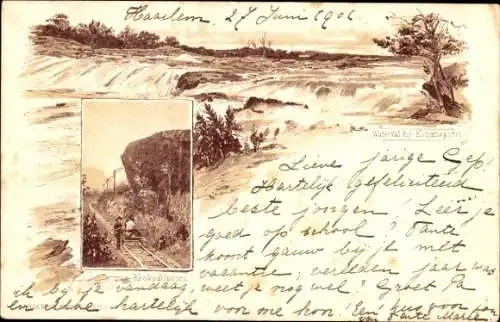 Haarlem 27 Juni 1901
Waterval bij Komatipoort
Krokodilpoort
Lieve jarige Gep
Hartelijk gefeliciteerd
beste jongen! Leer je
goed op school? Tante
komt gauw bij je met
vacantie, verleden jaar was
ik bij je vandaag, weet je nog wel? Groet Pa
en hartelijk voor me hoor. Een kus voor jou
van Tante Marie.